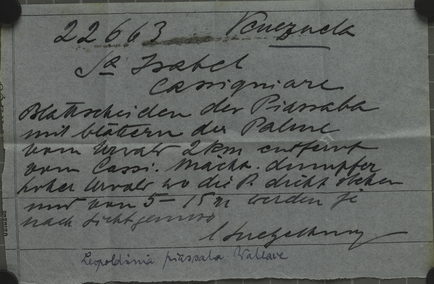 22663 Venezuela
Sa Isabel
Cassiquiare
Blattscheiden der Piassaba
mit blättern der Palme
vom Urwald 2 km entfernt
vom Cassi. dumpfer
hoher Urwald wo die P. dicht stehen
und von 5-15 m werden je
nach
Leopoldinia piassaba Wallace